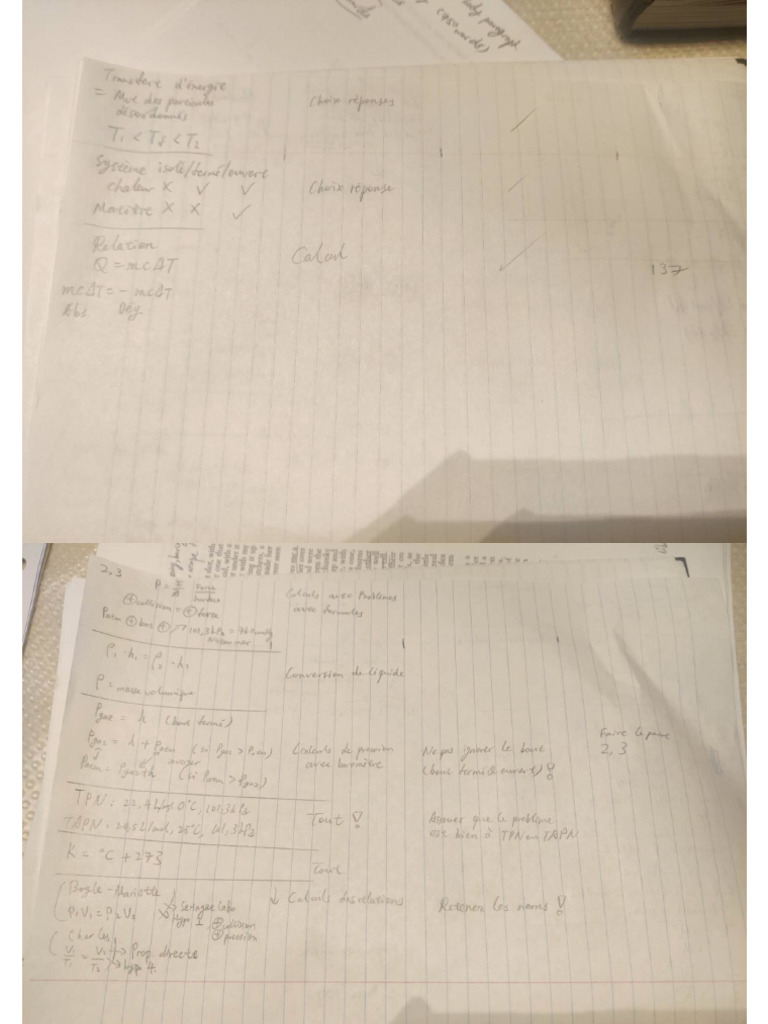 Transfere d'énergie
= Mvt des particules
désordonnés
T₁ < Tf < T₂
Choix réponses
Système isolé/fermé/ouvert
chaleur X ✓ ✓
Matière X X ✓
Choix réponse
Relation
Q = mcΔT
mcΔT = - mcΔT
Abs Dég
Calcul
137
2,3
P = F/A Force/surface
⊕ collision = ⊕ force
Patm ⊕ bas ⊕ → 101,3 kPa = 760 mmHg
Niveau mer
Calculs avec Problèmes
avec formules
ρ₁ · h₁ = ρ₂ · h₂
ρ = masse volumique
Conversion de liquide
Pgaz = h (bout fermé)
Pgaz = h + Patm (si Pgaz > Patm)
Patm = Pgaz + h (si Patm > Pgaz)
Calculs de pression
avec baromètre
Ne pas ignorer le bout
(bout fermé & ouvert) !
Faire la page
2,3
TPN: 22,4 L/mol 0°C, 101,3 kPa
TAPN = 24,5 L/mol, 25°C, 101,3 kPa
Tout !
Assurer que le problème
est bien à TPN ou TAPN
K = °C + 273
Tous
Boyle-Mariotte
P₁V₁ = P₂V₂
Seringue Labo
Hyp 1 ⊕ collision
⊕ pression
↓ Calculs des relations
Retenir les noms !
Charles
V₁/T₁ = V₂/T₂ → Prop directe
→ hyp 4